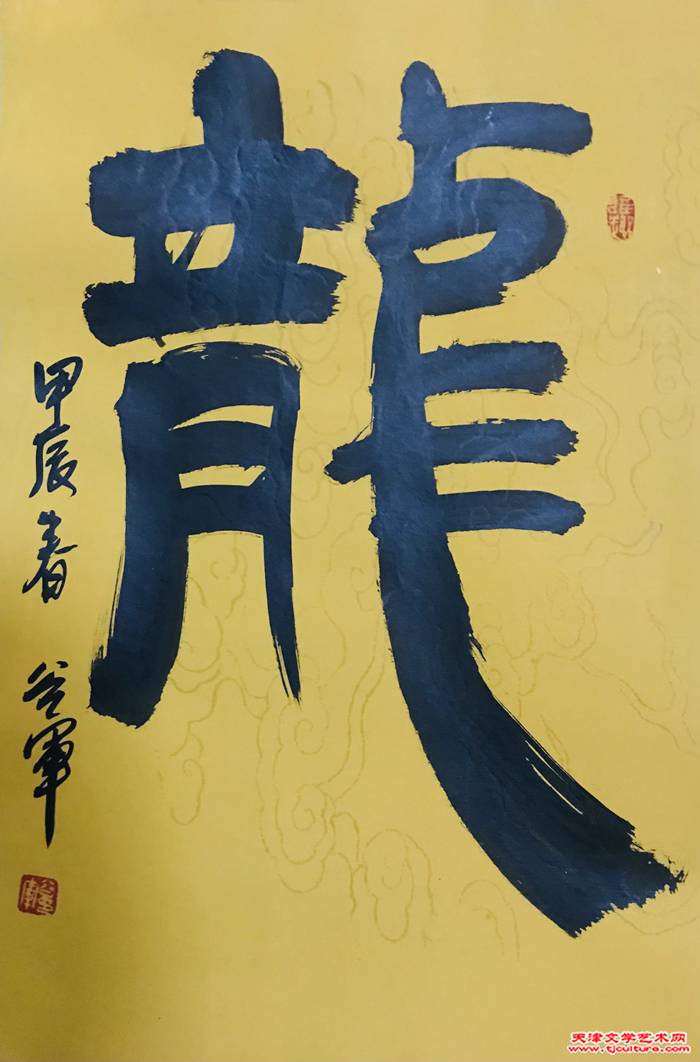 龍
甲辰春 谷軍
天津文学艺术网
www.tjcultura.com